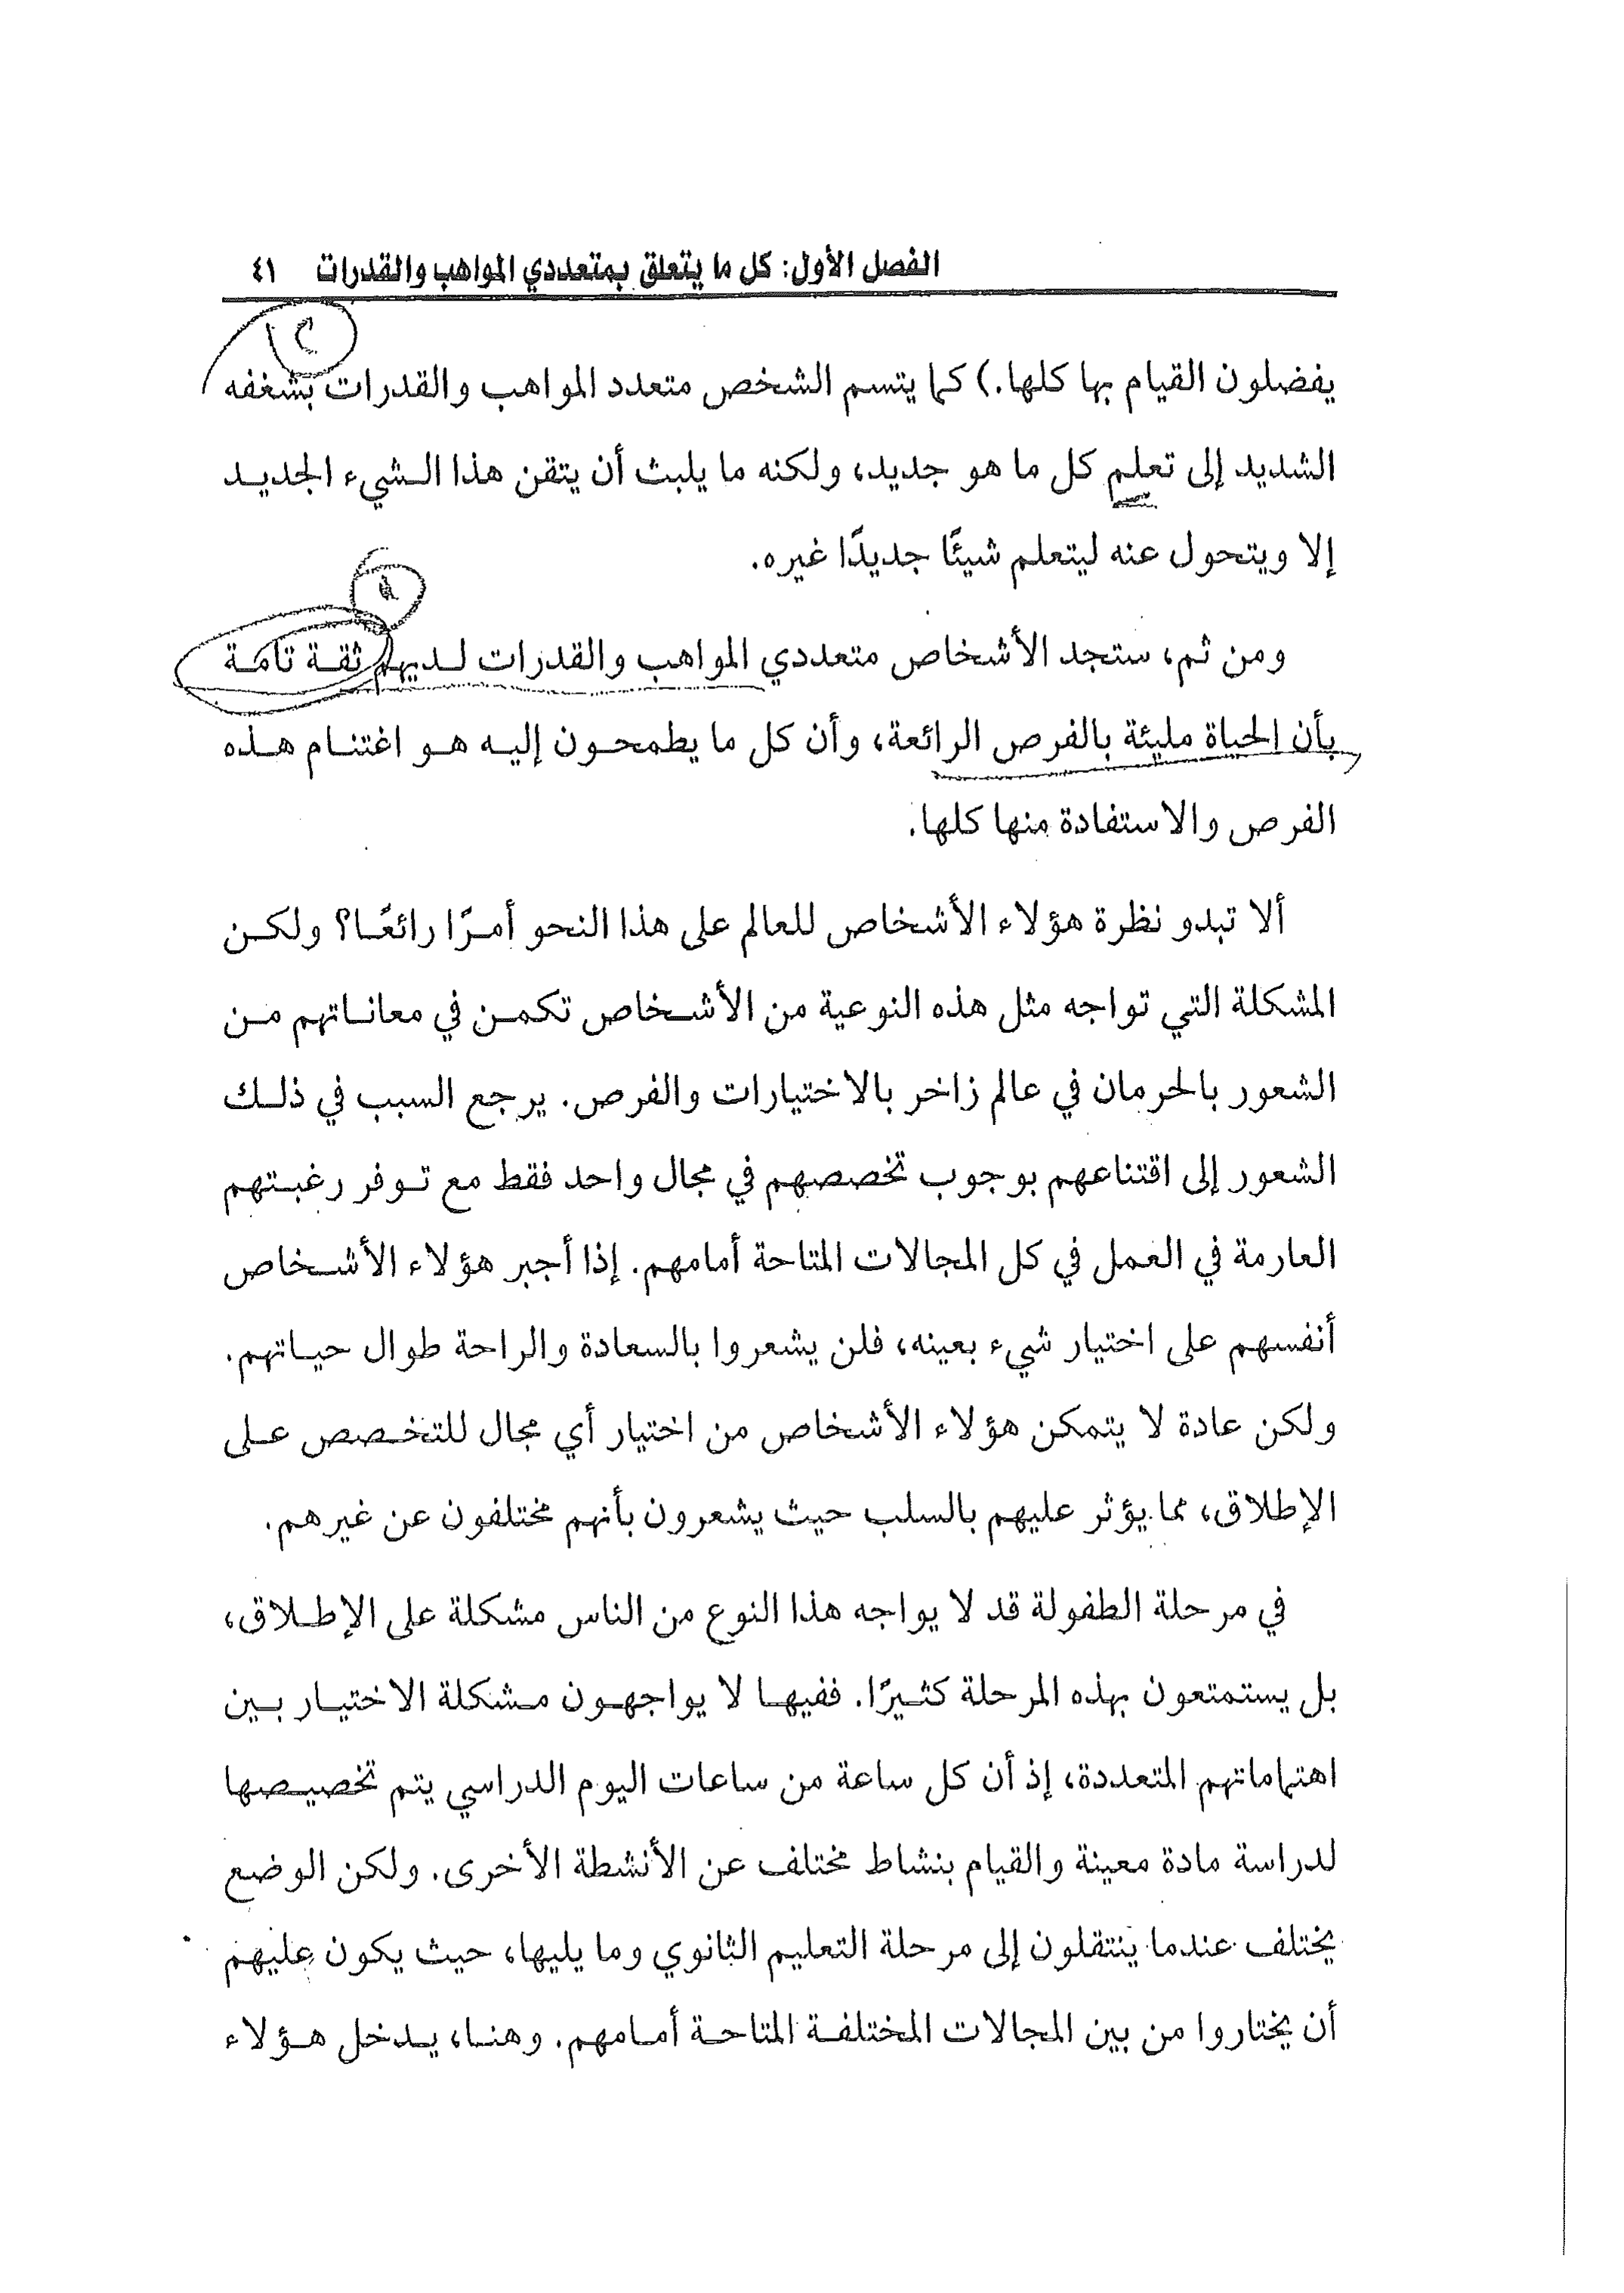 الفصل الأول: كل ما يتعلق بمتعددي المواهب والقدرات ٤١
يفضلون القيام بها كلها.) كما يتسم الشخص متعدد المواهب والقدرات بشغفه
الشديد إلى تعلم كل ما هو جديد، ولكنه ما يلبث أن يتقن هذا الشيء الجديد
إلا ويتحول عنه ليتعلم شيئًا جديدًا غيره.
ومن ثم، ستجد الأشخاص متعددي المواهب والقدرات لديهم ثقة تامة
بأن الحياة مليئة بالفرص الرائعة، وأن كل ما يطمحون إليه هو اغتنام هذه
الفرص والاستفادة منها كلها.
ألا تبدو نظرة هؤلاء الأشخاص للعالم على هذا النحو أمرًا رائعًا؟ ولكن
المشكلة التي تواجه مثل هذه النوعية من الأشخاص تكمن في معاناتهم من
الشعور بالحرمان في عالم زاخر بالاختيارات والفرص. يرجع السبب في ذلك
الشعور إلى اقتناعهم بوجوب تخصصهم في مجال واحد فقط مع توفر رغبتهم
العارمة في العمل في كل المجالات المتاحة أمامهم. إذا أجبر هؤلاء الأشخاص
أنفسهم على اختيار شيء بعينه، فلن يشعروا بالسعادة والراحة طوال حياتهم.
ولكن عادة لا يتمكن هؤلاء الأشخاص من اختيار أي مجال للتخصص على
الإطلاق، مما يؤثر عليهم بالسلب حيث يشعرون بأنهم مختلفون عن غيرهم.
في مرحلة الطفولة قد لا يواجه هذا النوع من الناس مشكلة على الإطلاق،
بل يستمتعون بهذه المرحلة كثيرًا. ففيها لا يواجهون مشكلة الاختيار بين
اهتماماتهم المتعددة، إذ أن كل ساعة من ساعات اليوم الدراسي يتم تخصيصها
لدراسة مادة معينة والقيام بنشاط مختلف عن الأنشطة الأخرى. ولكن الوضع
يختلف عندما ينتقلون إلى مرحلة التعليم الثانوي وما يليها، حيث يكون عليهم
أن يختاروا من بين المجالات المختلفة المتاحة أمامهم. وهنا، يدخل هؤلاء